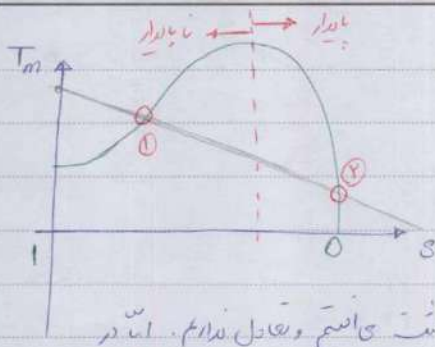 ناپایدار ← → پایدار
Tm
①
②
1 0 S
می افتیم و تعادل نداریم. اما در